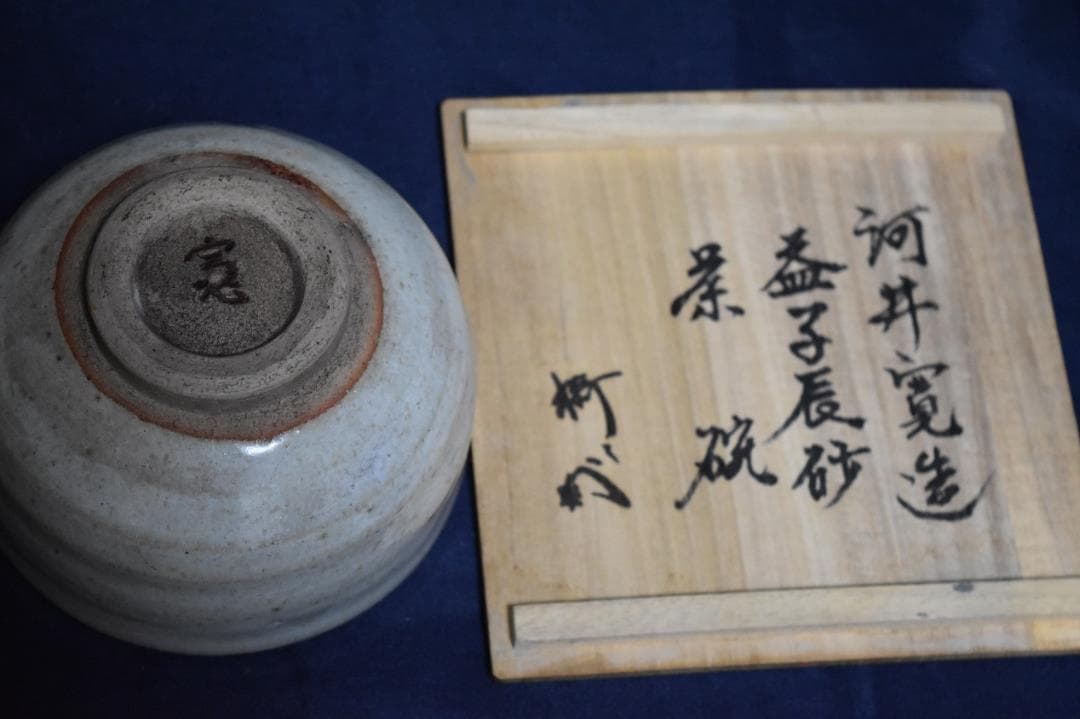 河井寛造
益子辰砂
茶碗